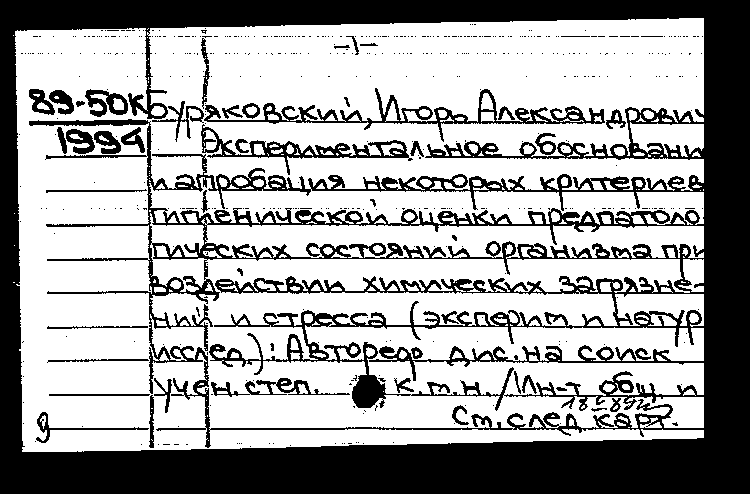 -1-
89-50К Буряковский, Игорь Александрович
1994 Экспериментальное обосновани
и апробация некоторых критериев
гигиенической оценки предпатоло
гических состояний организма при
воздействии химических загрязне-
ний и стресса (эксперим. и натур
исслед.): Автореф. дис. на соиск
учен. степ. к.т.н. / Ин-т общ. и
См. след. карт.